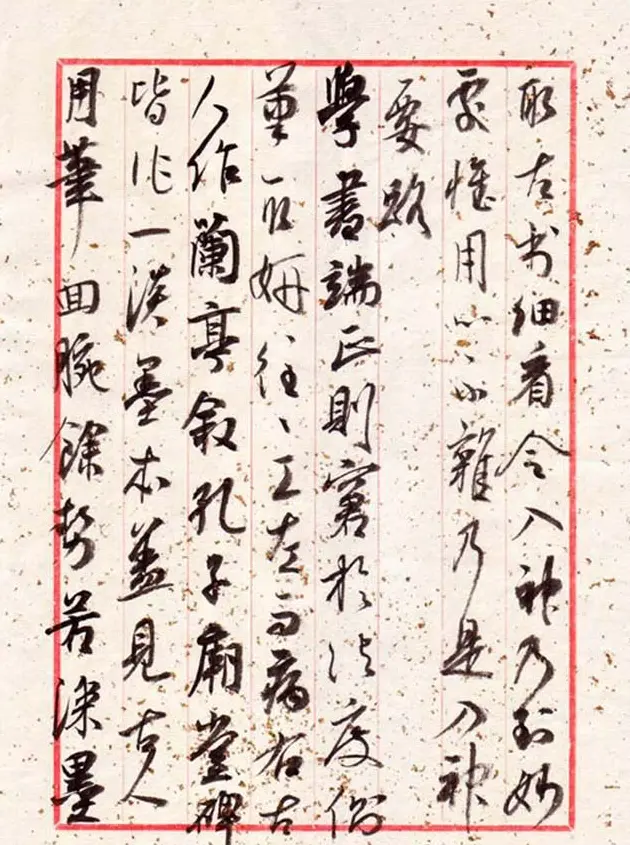 取古书细看令入神乃到妙
處惟用心不雜乃是入神
要路
學書端正則窘於法度側
筆取妍往〻工左而病右古
人作蘭亭敘孔子廟堂碑
皆作一淡墨本蓋見古人
用筆回腕餘勢若深墨